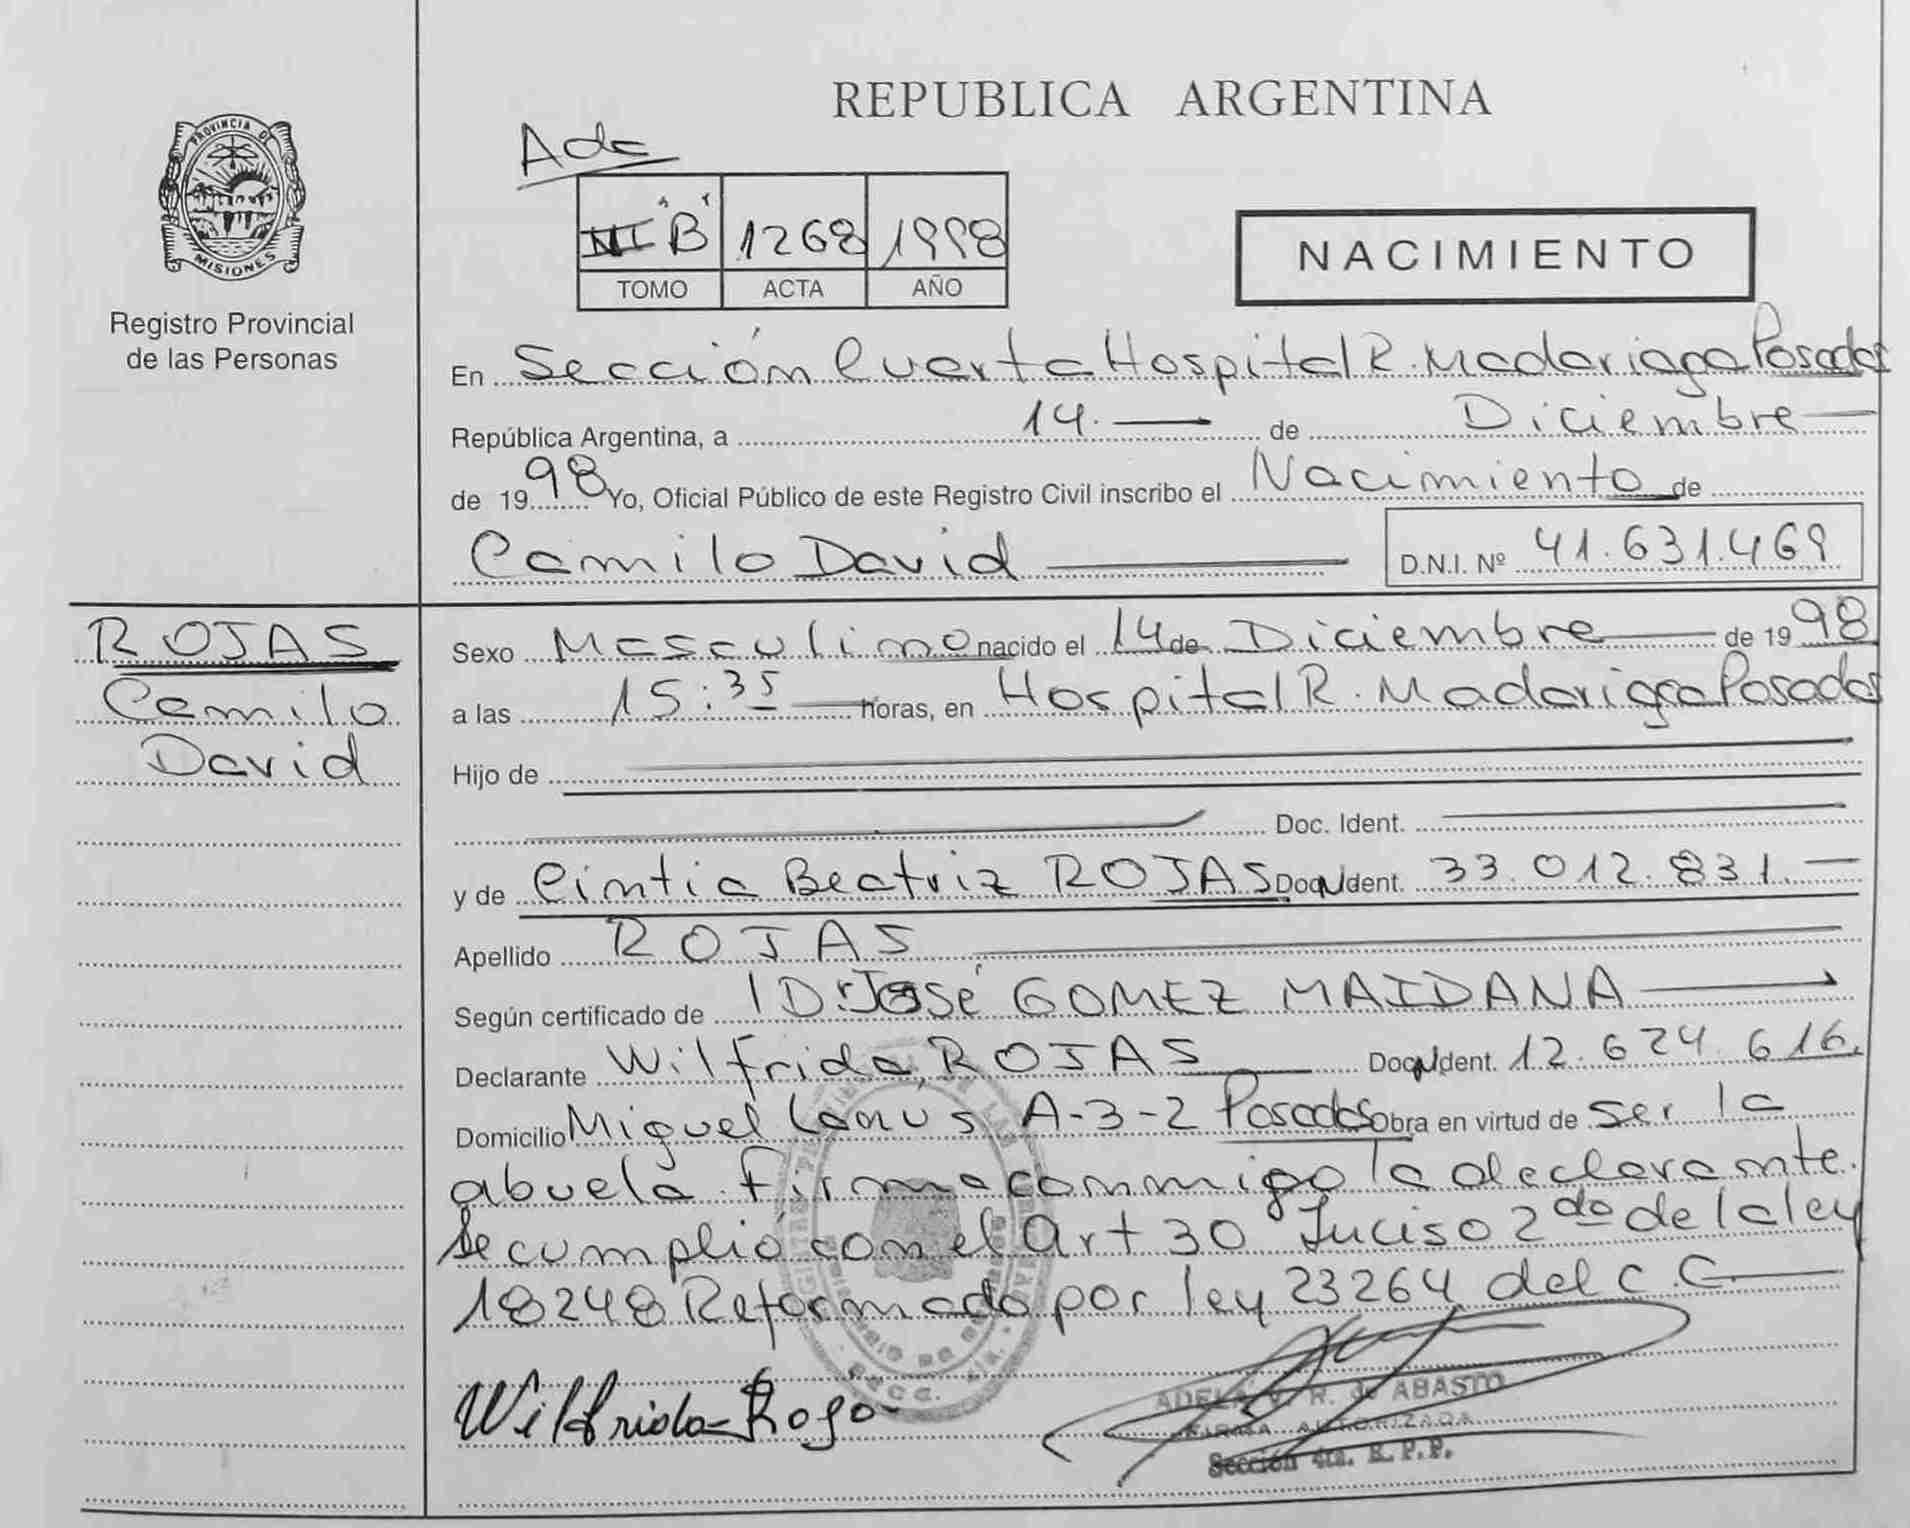 PROVINCIA DE
MISIONES
Registro Provincial
de las Personas
REPUBLICA ARGENTINA
Ada
"B" 1268 1998
TOMO ACTA AÑO
NACIMIENTO
En Sección Cuarta Hospital R. Madariaga Posadas
República Argentina, a 14.— de Diciembre —
de 1998 Yo, Oficial Público de este Registro Civil inscribo el Nacimiento de
Camilo David — D.N.I. Nº 41.631.469
ROJAS
Camilo
David
Sexo Masculino nacido el 14 de Diciembre — de 1998
a las 15:35 — horas, en Hospital R. Madariaga Posadas
Hijo de
Doc. Ident.
y de Cintia Beatriz ROJAS Doc. N Ident. 33.012.831.—
Apellido ROJAS
Según certificado de Dr. José GOMEZ MAIDANA
Declarante Wilfrida, ROJAS Doc. N Ident. 12.624.616.
Domicilio Miguel Lanús A-3-2 Posadas Obra en virtud de ser la
abuela. Firma conmigo la declarante.
Se cumplió con el Art 30 Inciso 2do de la ley
18248 Reformado por ley 23264 del C.C.—
Wilfrida Roja
ADELA V. R. de ABASTO
FIRMA AUTORIZADA
Sección 4ta. R.P.P.